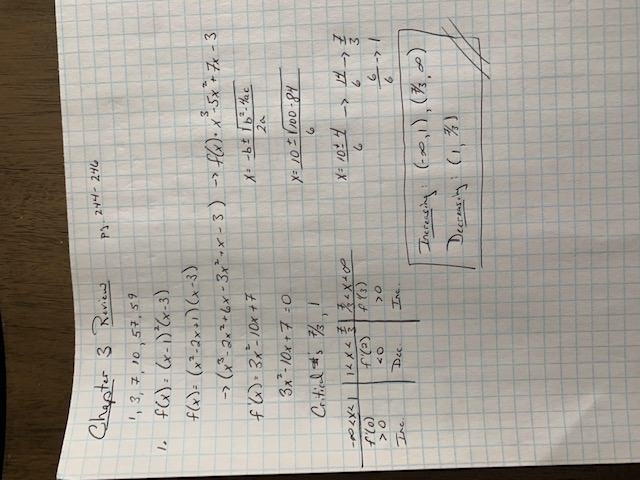 Chapter 3 Review pg. 244-246
1, 3, 7, 10, 57, 59
1. f(x) = (x-1)²(x-3)
f(x) = (x²-2x+1)(x-3)
→ (x³-2x²+6x-3x²+x-3) → f(x) = x³-5x²+7x-3
f'(x) = 3x²-10x+7
x = -b ± √b²-4ac / 2a
3x²-10x+7 = 0
x = 10 ± √100-84 / 6
Critical #'s 7/3, 1
x = 10 ± 4 / 6 → 14/6 → 7/3
6/6 → 1
-∞<x<1 | 1<x<7/3 | 7/3<x<∞
f'(0) >0 | f'(2) <0 | f'(3) >0
Inc. | Dec. | Inc.
Increasing: (-∞,1), (7/3, ∞)
Decreasing: (1, 7/3)